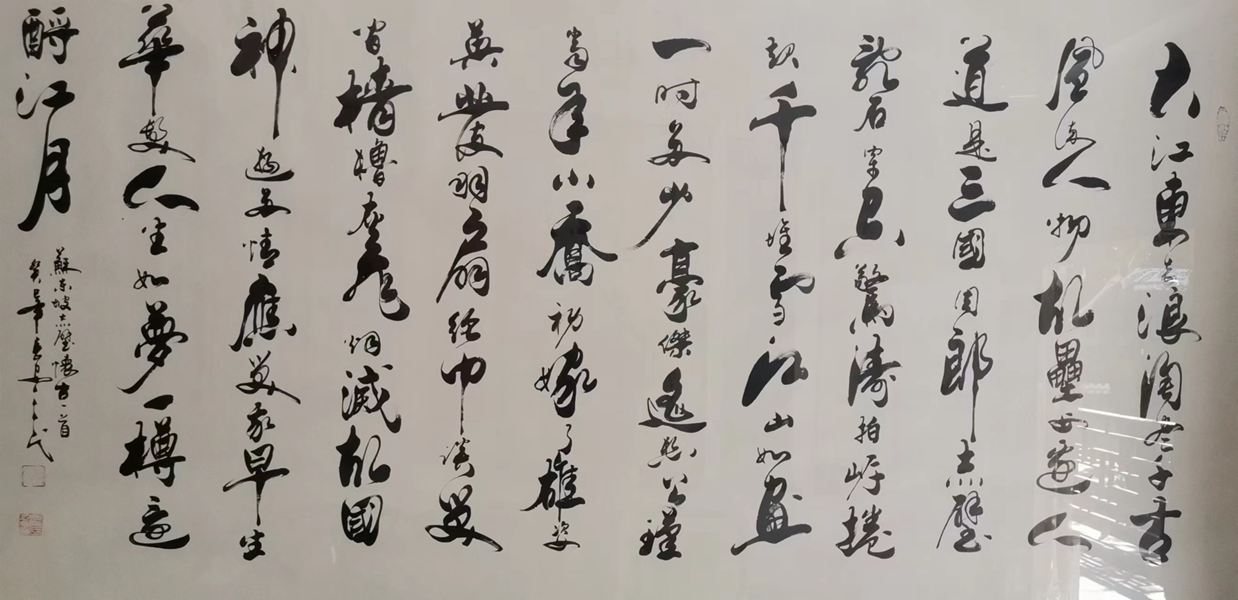 大江東去浪淘盡千古
風流人物故壘西邊人
道是三國周郎赤壁
亂石穿空驚濤拍岸捲
起千堆雪江山如畫
一時多少豪傑遙想公瑾
當年小喬初嫁了雄姿
英發羽扇綸巾談笑
間檣櫓灰飛烟滅故國
神遊多情應笑我早生
華髮人生如夢一樽還
酹江月
蘇東坡赤壁懷古一首